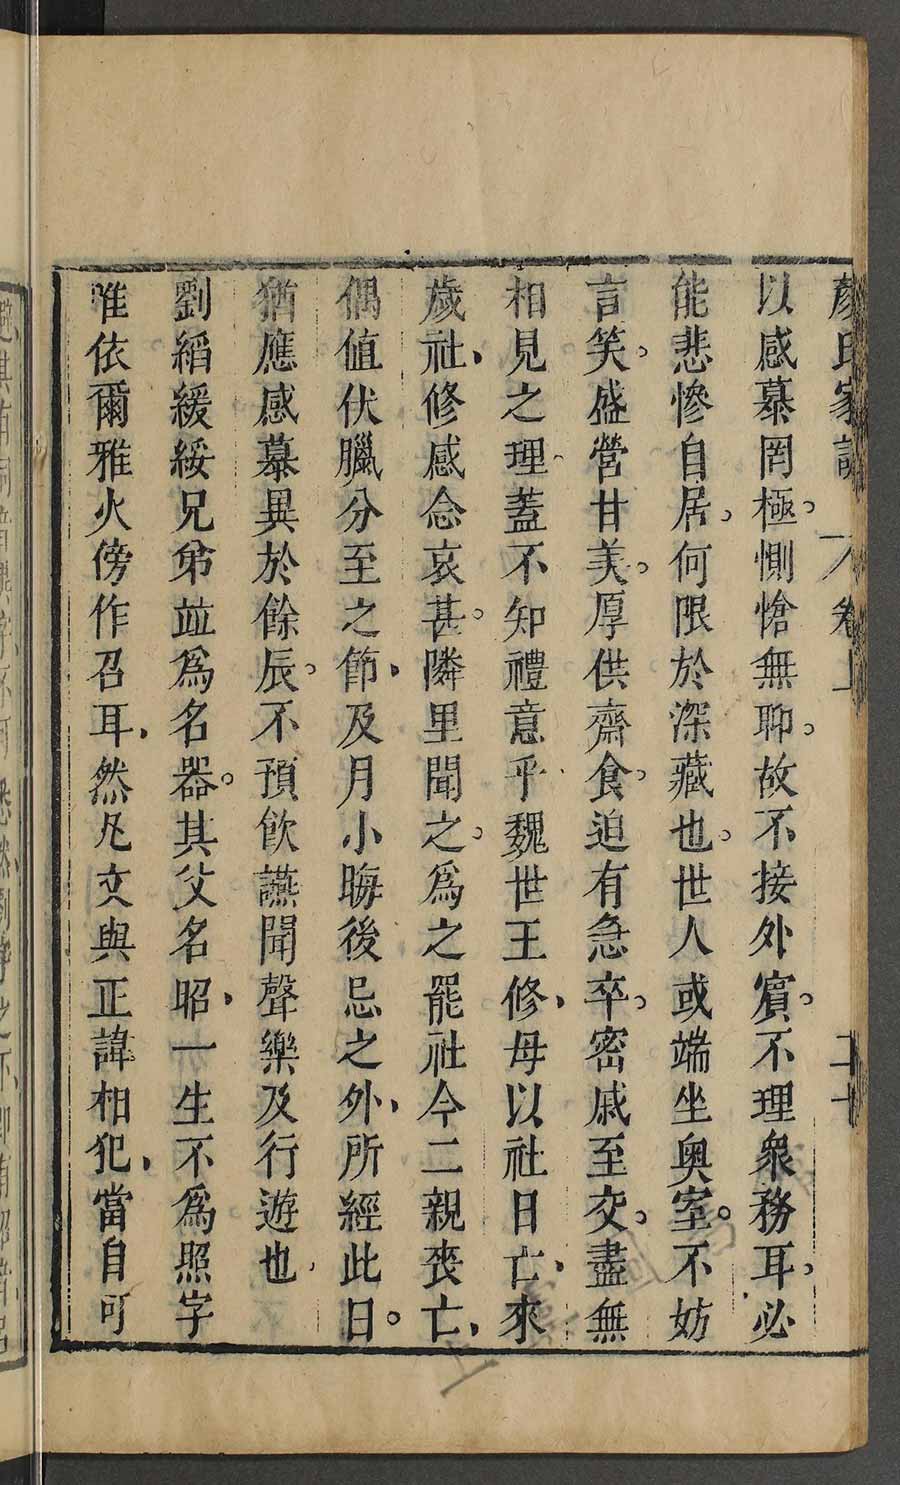 顏氏家訓 卷上 二十
以感慕罔極。惻愴無聊。故不接外賓。不理衆務耳。必
能悲慘自居。何限於深藏也。世人或端坐奥室。不妨
言笑。盛營甘美。厚供齋食。迫有急卒。密戚至交。盡無
相見之理。蓋不知禮意乎魏世王修、母以社日亡、來
歲社、修感念哀甚。隣里聞之。爲之罷社今二親喪亡、
偶值伏臘分至之節、及月小晦後忌之外、所經此日。
猶應感慕異於餘辰。不預飲讌聞聲樂及行遊也、
劉縚緩綏兄弟並爲名器。其父名昭、一生不爲照字
惟依爾雅火傍作召耳、然凡文與正諱相犯、當自可